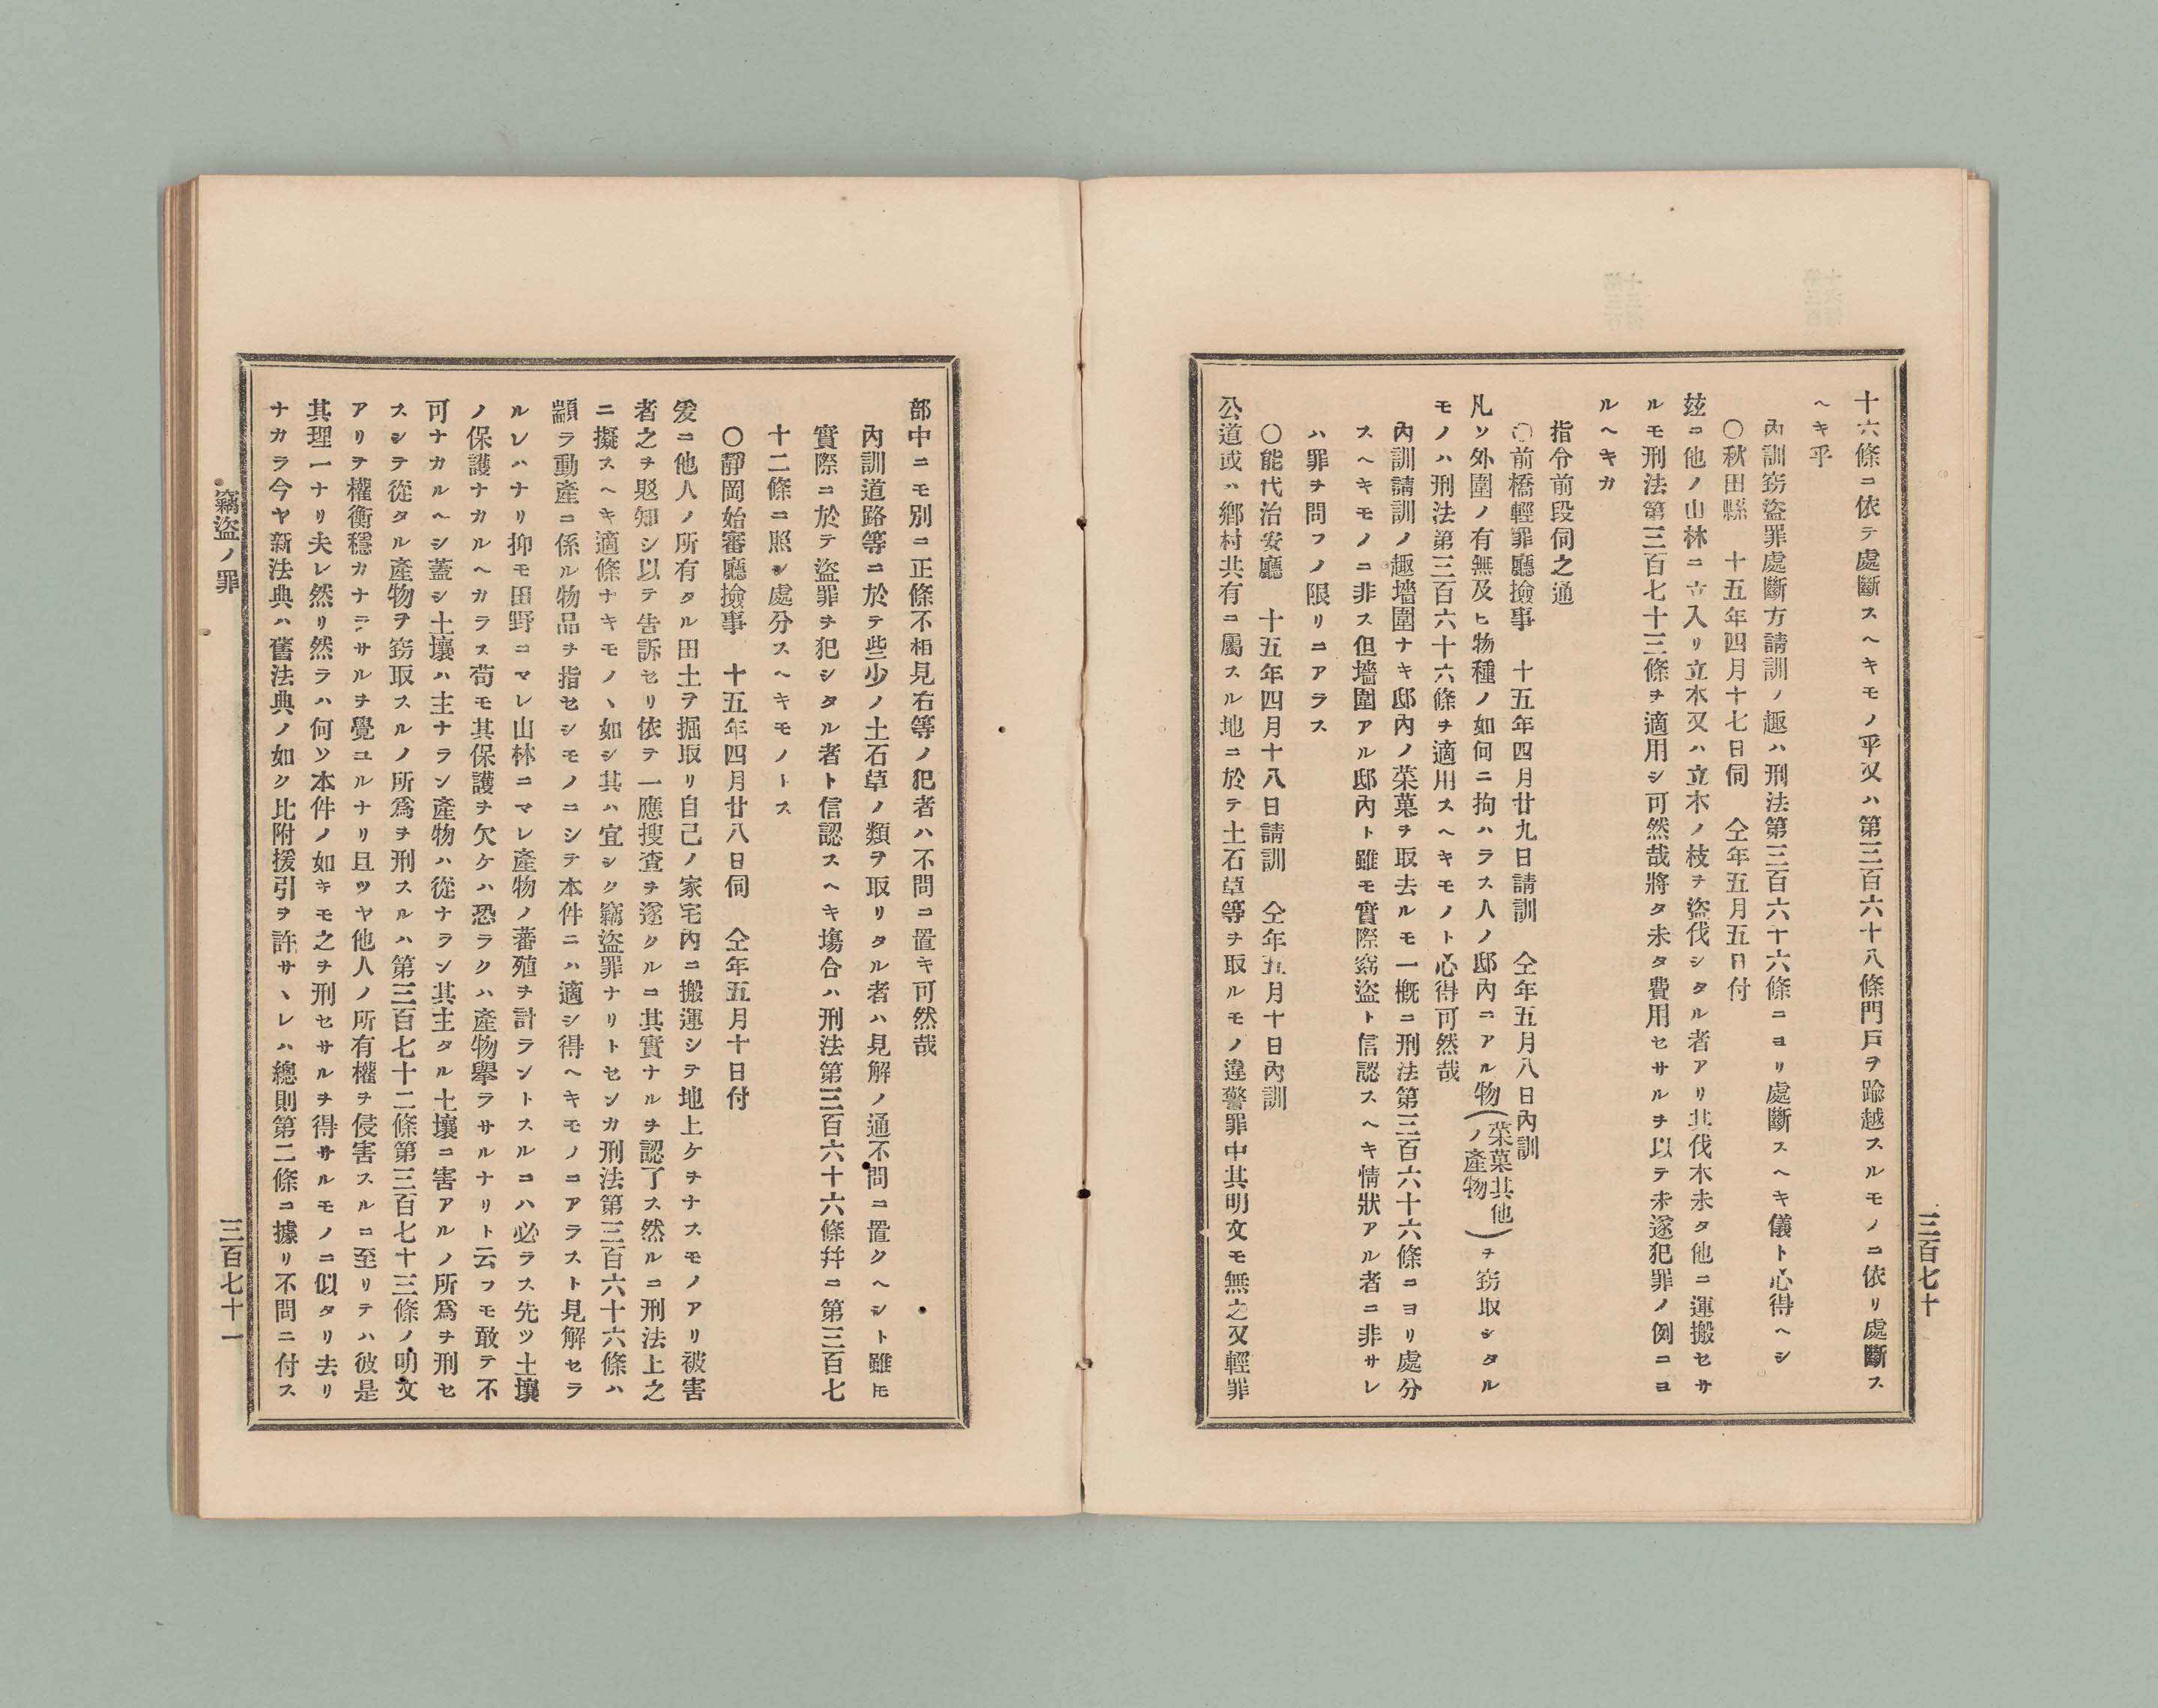 十六條ニ依テ處斷スヘキモノ乎又ハ第三百六十八條門戸ヲ踰越スルモノニ依リ處斷ス
ヘキ乎
內訓竊盜罪處斷方請訓ノ趣ハ刑法第三百六十六條ニヨリ處斷スヘキ儀ト心得ヘシ
〇秋田縣　十五年四月十七日伺　仝年五月五日付
玆ニ他ノ山林ニ立入リ立木又ハ立木ノ枝ヲ盜伐シタル者アリ其伐木未タ他ニ運搬セサ
ルモ刑法第三百七十三條ヲ適用シ可然哉將タ未タ費用セサルヲ以テ未遂犯罪ノ例ニヨ
ルヘキカ
指令前段伺之通
〇前橋輕罪廳撿事　十五年四月廿九日請訓　仝年五月八日內訓
凡ソ外圍ノ有無及ヒ物種ノ如何ニ拘ハラス人ノ邸內ニアル物(菜菓其他ノ產物)ヲ窃取シタル
モノハ刑法第三百六十六條ヲ適用スヘキモノト心得可然哉
內訓請訓ノ趣墻圍ナキ邸內ノ菜菓ヲ取去ルモ一槪ニ刑法第三百六十六條ニヨリ處分
スヘキモノニ非ス但墻圍アル邸內ト雖モ實際竊盜ト信認スヘキ情狀アル者ニ非サレ
ハ罪ヲ問フノ限リニアラス
〇能代治安廳　十五年四月十八日請訓　仝年五月十日內訓
公道或ハ鄕村共有ニ屬スル地ニ於テ土石草等ヲ取ルモノ違警罪中其明文モ無之又輕罪
三百七十
部中ニモ別ニ正條不相見右等ノ犯者ハ不問ニ置キ可然哉
內訓道路等ニ於テ些少ノ土石草ノ類ヲ取リタル者ハ見解ノ通不問ニ置クヘシト雖𪜈
實際ニ於テ盜罪ヲ犯シタル者ト信認スヘキ塲合ハ刑法第三百六十六條幷ニ第三百七
十二條ニ照シ處分スヘキモノトス
〇靜岡始審廳撿事　十五年四月廿八日伺　仝年五月十日付
爰ニ他人ノ所有タル田土ヲ掘取リ自己ノ家宅內ニ搬運シテ地上ケヲナスモノアリ被害
者之ヲ覺知シ以テ告訴セリ依テ一應搜査ヲ遂クルニ其實ナルヲ認了ス然ルニ刑法上之
ニ擬スヘキ適條ナキモノヽ如シ其ハ宜シク竊盜罪ナリトセンカ刑法第三百六十六條ハ
顓ラ動產ニ係ル物品ヲ指セシモノニシテ本件ニハ適シ得ヘキモノニアラスト見解セラ
ルレハナリ抑モ田野ニマレ山林ニマレ產物ノ蕃殖ヲ計ラントスルニハ必ラス先ツ土壤
ノ保護ナカルヘカラス苟モ其保護ヲ欠ケハ恐ラクハ產物擧ラサルナリト云フモ敢テ不
可ナカルヘシ蓋シ土壤ハ主ナラン產物ハ從ナラン其主タル土壤ニ害アルノ所爲ヲ刑セ
スシテ從タル產物ヲ窃取スルノ所爲ヲ刑スルハ第三百七十二條第三百七十三條ノ明文
アリヲ權衡穩カナラサルヲ覺ユルナリ且ツヤ他人ノ所有權ヲ侵害スルニ至リテハ彼是
其理一ナリ夫レ然リ然ラハ何ソ本件ノ如キモ之ヲ刑セサルヲ得サルモノニ似タリ去リ
ナカラ今ヤ新法典ハ舊法典ノ如ク比附援引ヲ許サヽレハ總則第二條ニ據リ不問ニ付ス
竊盜ノ罪
三百七十一